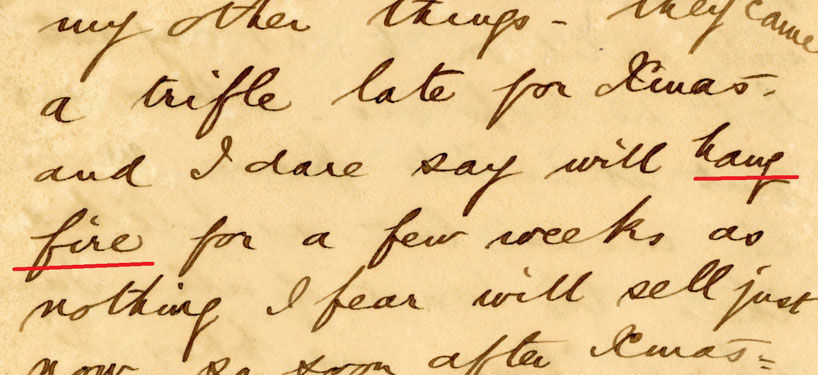 my other things - they came
a trifle late for Xmas -
and I dare say will hang
fire for a few weeks as
nothing I fear will sell just
now so soon after Xmas -